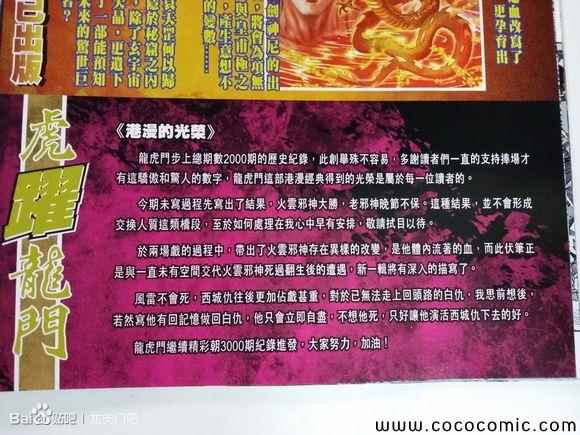 血改寫了
更孕育出
創神尼的出
將會為崑無
與皇甫極之
產生意想不
的變數……
貝天罡何以歸
隱於秘窟之內
除了玄宇宙
大晶，更遺下
了一部能預知
未來的驚世巨
著？
已出版
虎躍龍門
《港漫的光榮》
龍虎門步上總期數2000期的歷史紀錄，此創舉殊不容易，多謝讀者們一直的支持捧場才
有這驕傲和驚人的數字，龍虎門這部港漫經典得到的光榮是屬於每一位讀者的。
今期未寫過程先寫出了結果，火雲邪神大勝，老邪神晚節不保。這種結果，並不會形成
交換人質這類橋段，至於如何處理在我心中早有安排，敬請拭目以待。
於兩場戲的過程中，帶出了火雲邪神存在異樣的改變，是他體內流著的血，而此伏筆正
是與一直未有空間交代火雲邪神死過翻生後的遭遇，新一輯將有深入的描寫了。
風雷不會死，西城仇往後更加佔戲甚重，對於已無法走上回頭路的白仇，我思前想後，
若然寫他有回記憶做回白仇，他只會立即自盡，不想他死，只好讓他演活西城仇下去的好。
龍虎門繼續精彩朝3000期紀錄進發，大家努力，加油！
Bai貼吧 | 龙虎门吧
www.cococomic.com